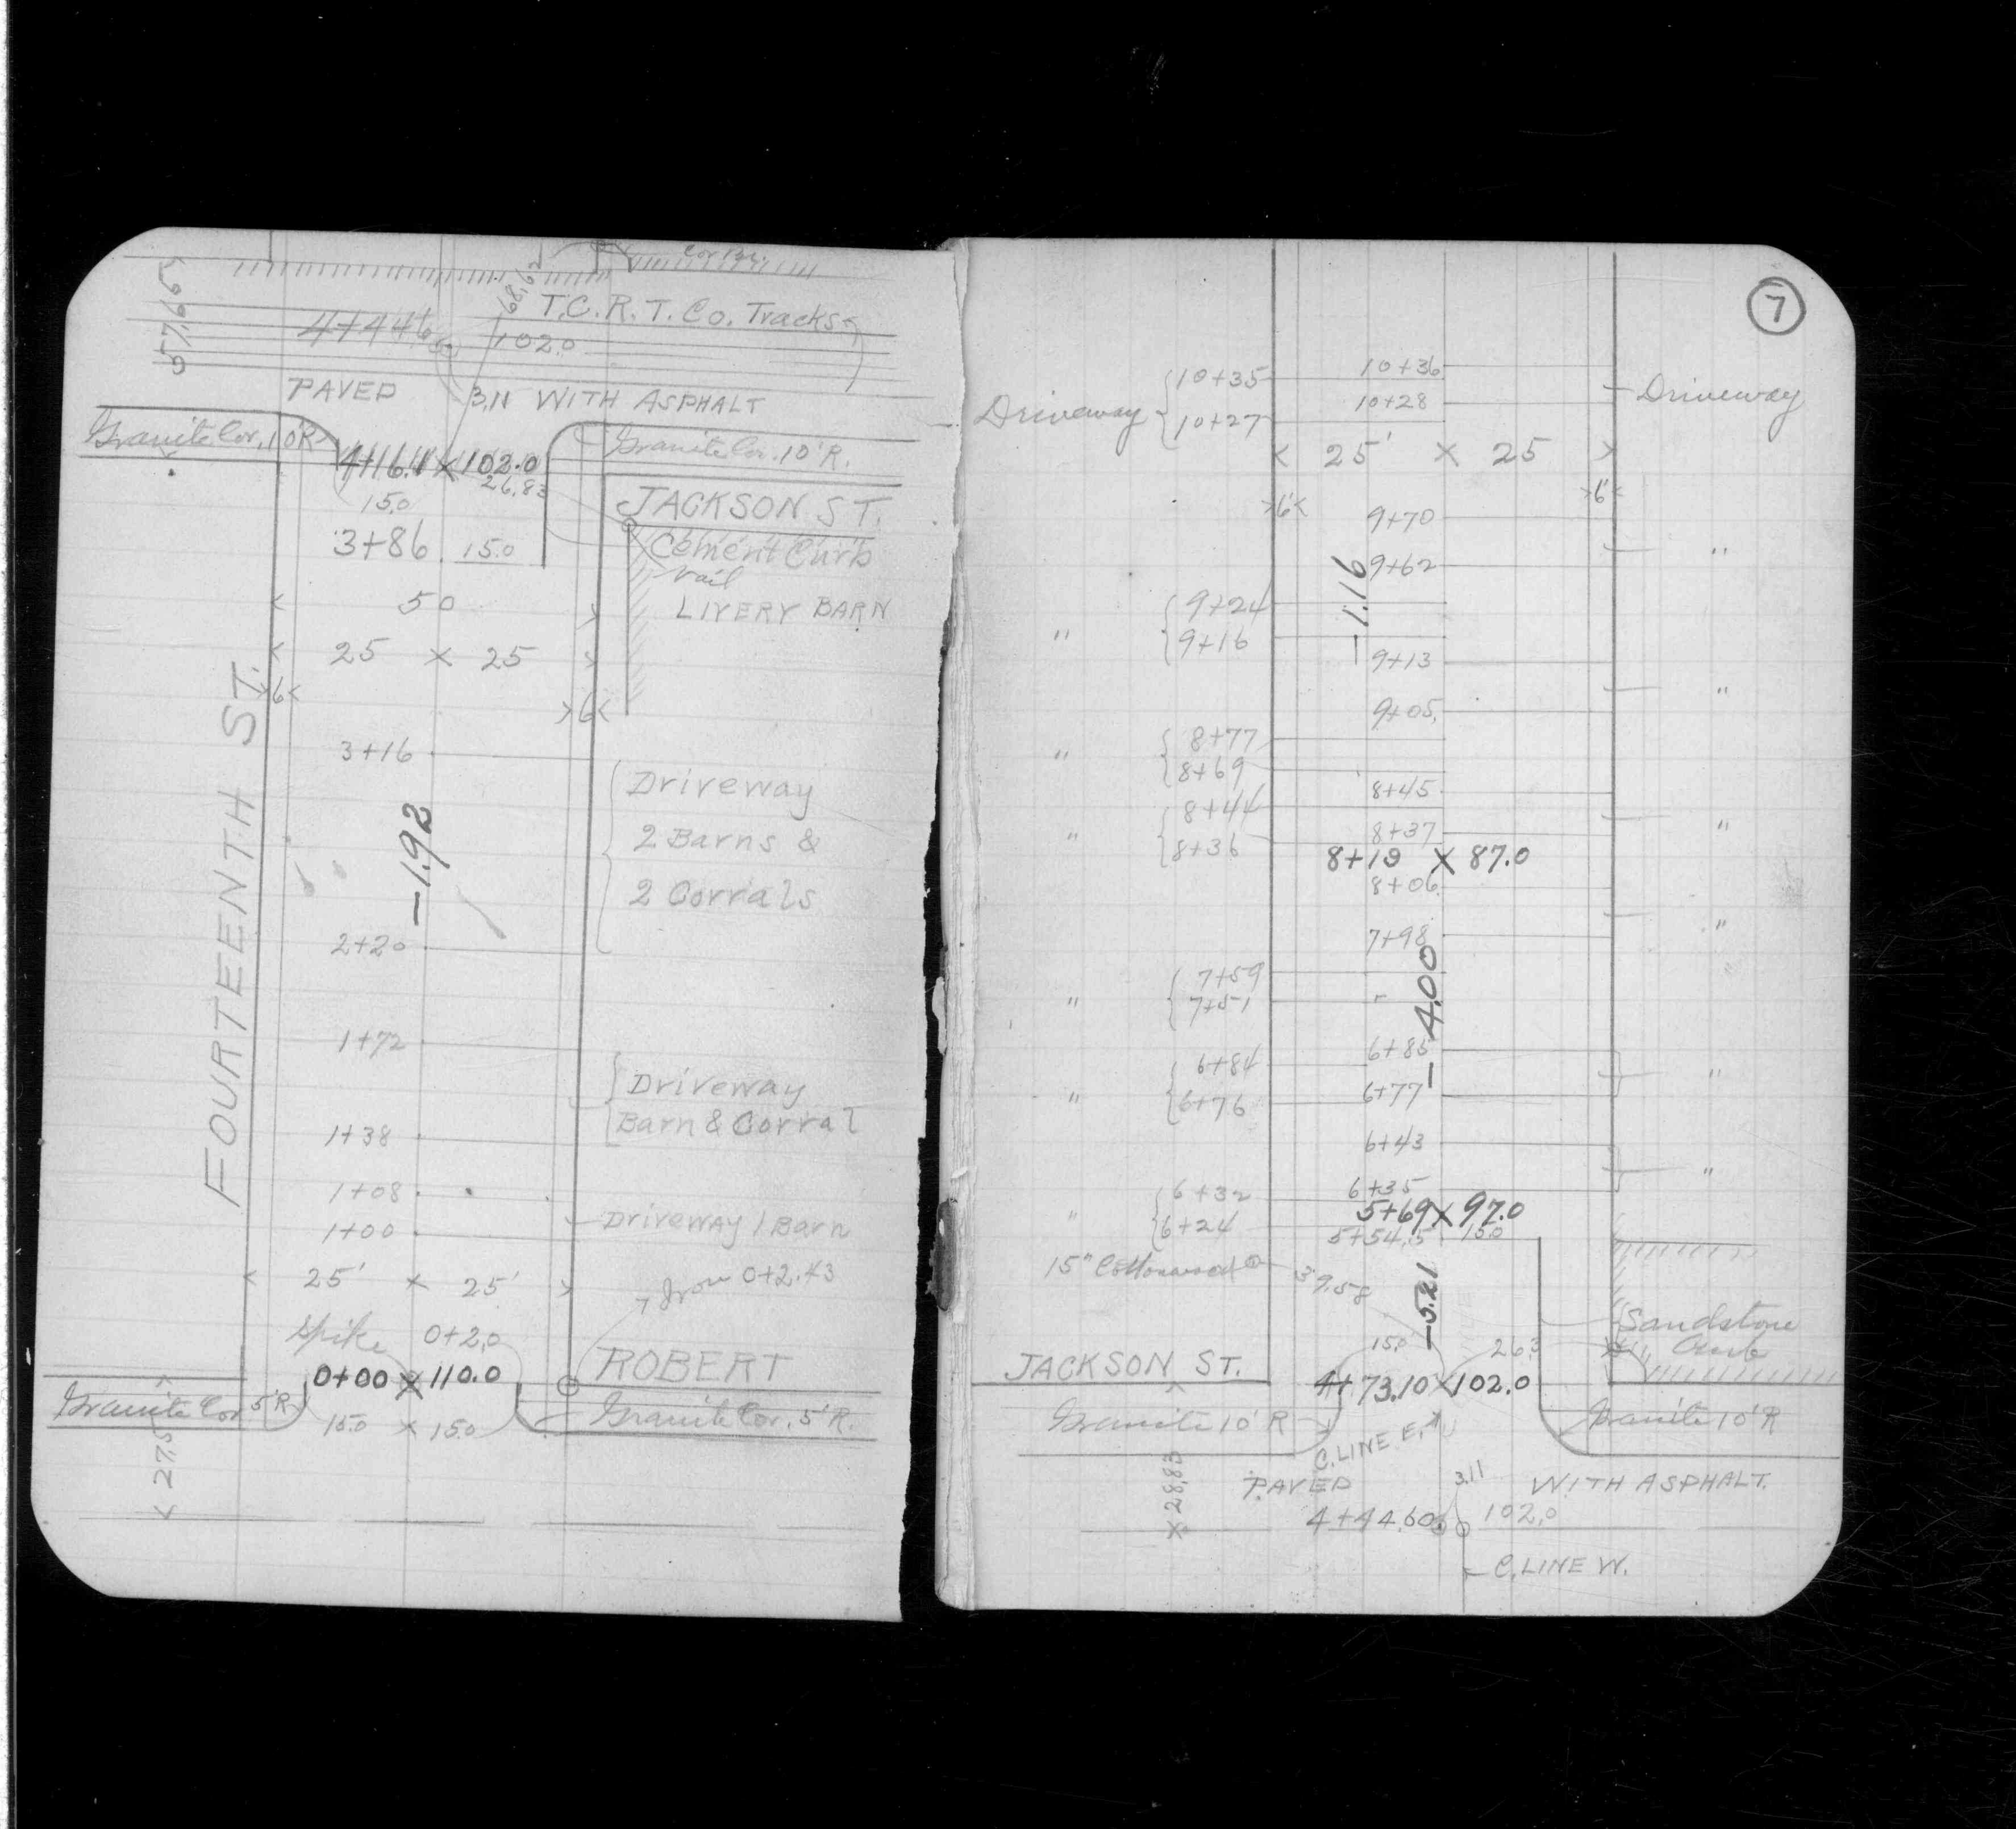 Cor Bl.
57.65
68.62
T.C.R.T. Co. Tracks
4+44.60
102.0
PAVED 3.11 WITH ASPHALT
Granite Cor. 10'R
Granite Cor. 10'R.
4+16.1 X 102.0
26.83
15.0
JACKSON ST.
3+86 15.0
Cement Curb
nail
50
LIVERY BARN
25 X 25
6
6
FOURTEENTH ST.
3+16
Driveway
2 Barns &
2 Corrals
-1.92
2+20
1+72
Driveway
Barn & Corral
1+38
1+08
1+00
Driveway 1 Barn
25' X 25'
Iron 0+2.43
Spike 0+2.0
ROBERT
0+00 X 110.0
Granite Cor 5'R
15.0 X 15.0
Granite Cor. 5'R.
27.5
7
10+35
10+36
Driveway
10+27
10+28
Driveway
25' X 25
6'
6'
9+70
"
9+62
-1.16
9+24
"
9+16
9+13
"
9+05
8+77
"
8+69
8+45
8+44
8+37
"
"
8+36
8+19 X 87.0
8+06
"
7+98
-4.00
7+59
"
7+51
6+85
6+84
"
6+77
"
6+76
6+43
"
6+35
6+32
5+69 X 97.0
"
6+24
5+54.5 15.0
15" Cottonwood
39.58
-5.21
Sandstone
Curb
15.0
26.3
JACKSON ST.
4+73.10 X 102.0
Granite 10' R
Granite 10' R
C. LINE E.
28.83
PAVED
3.11
WITH ASPHALT.
4+44.60
102.0
C. LINE W.